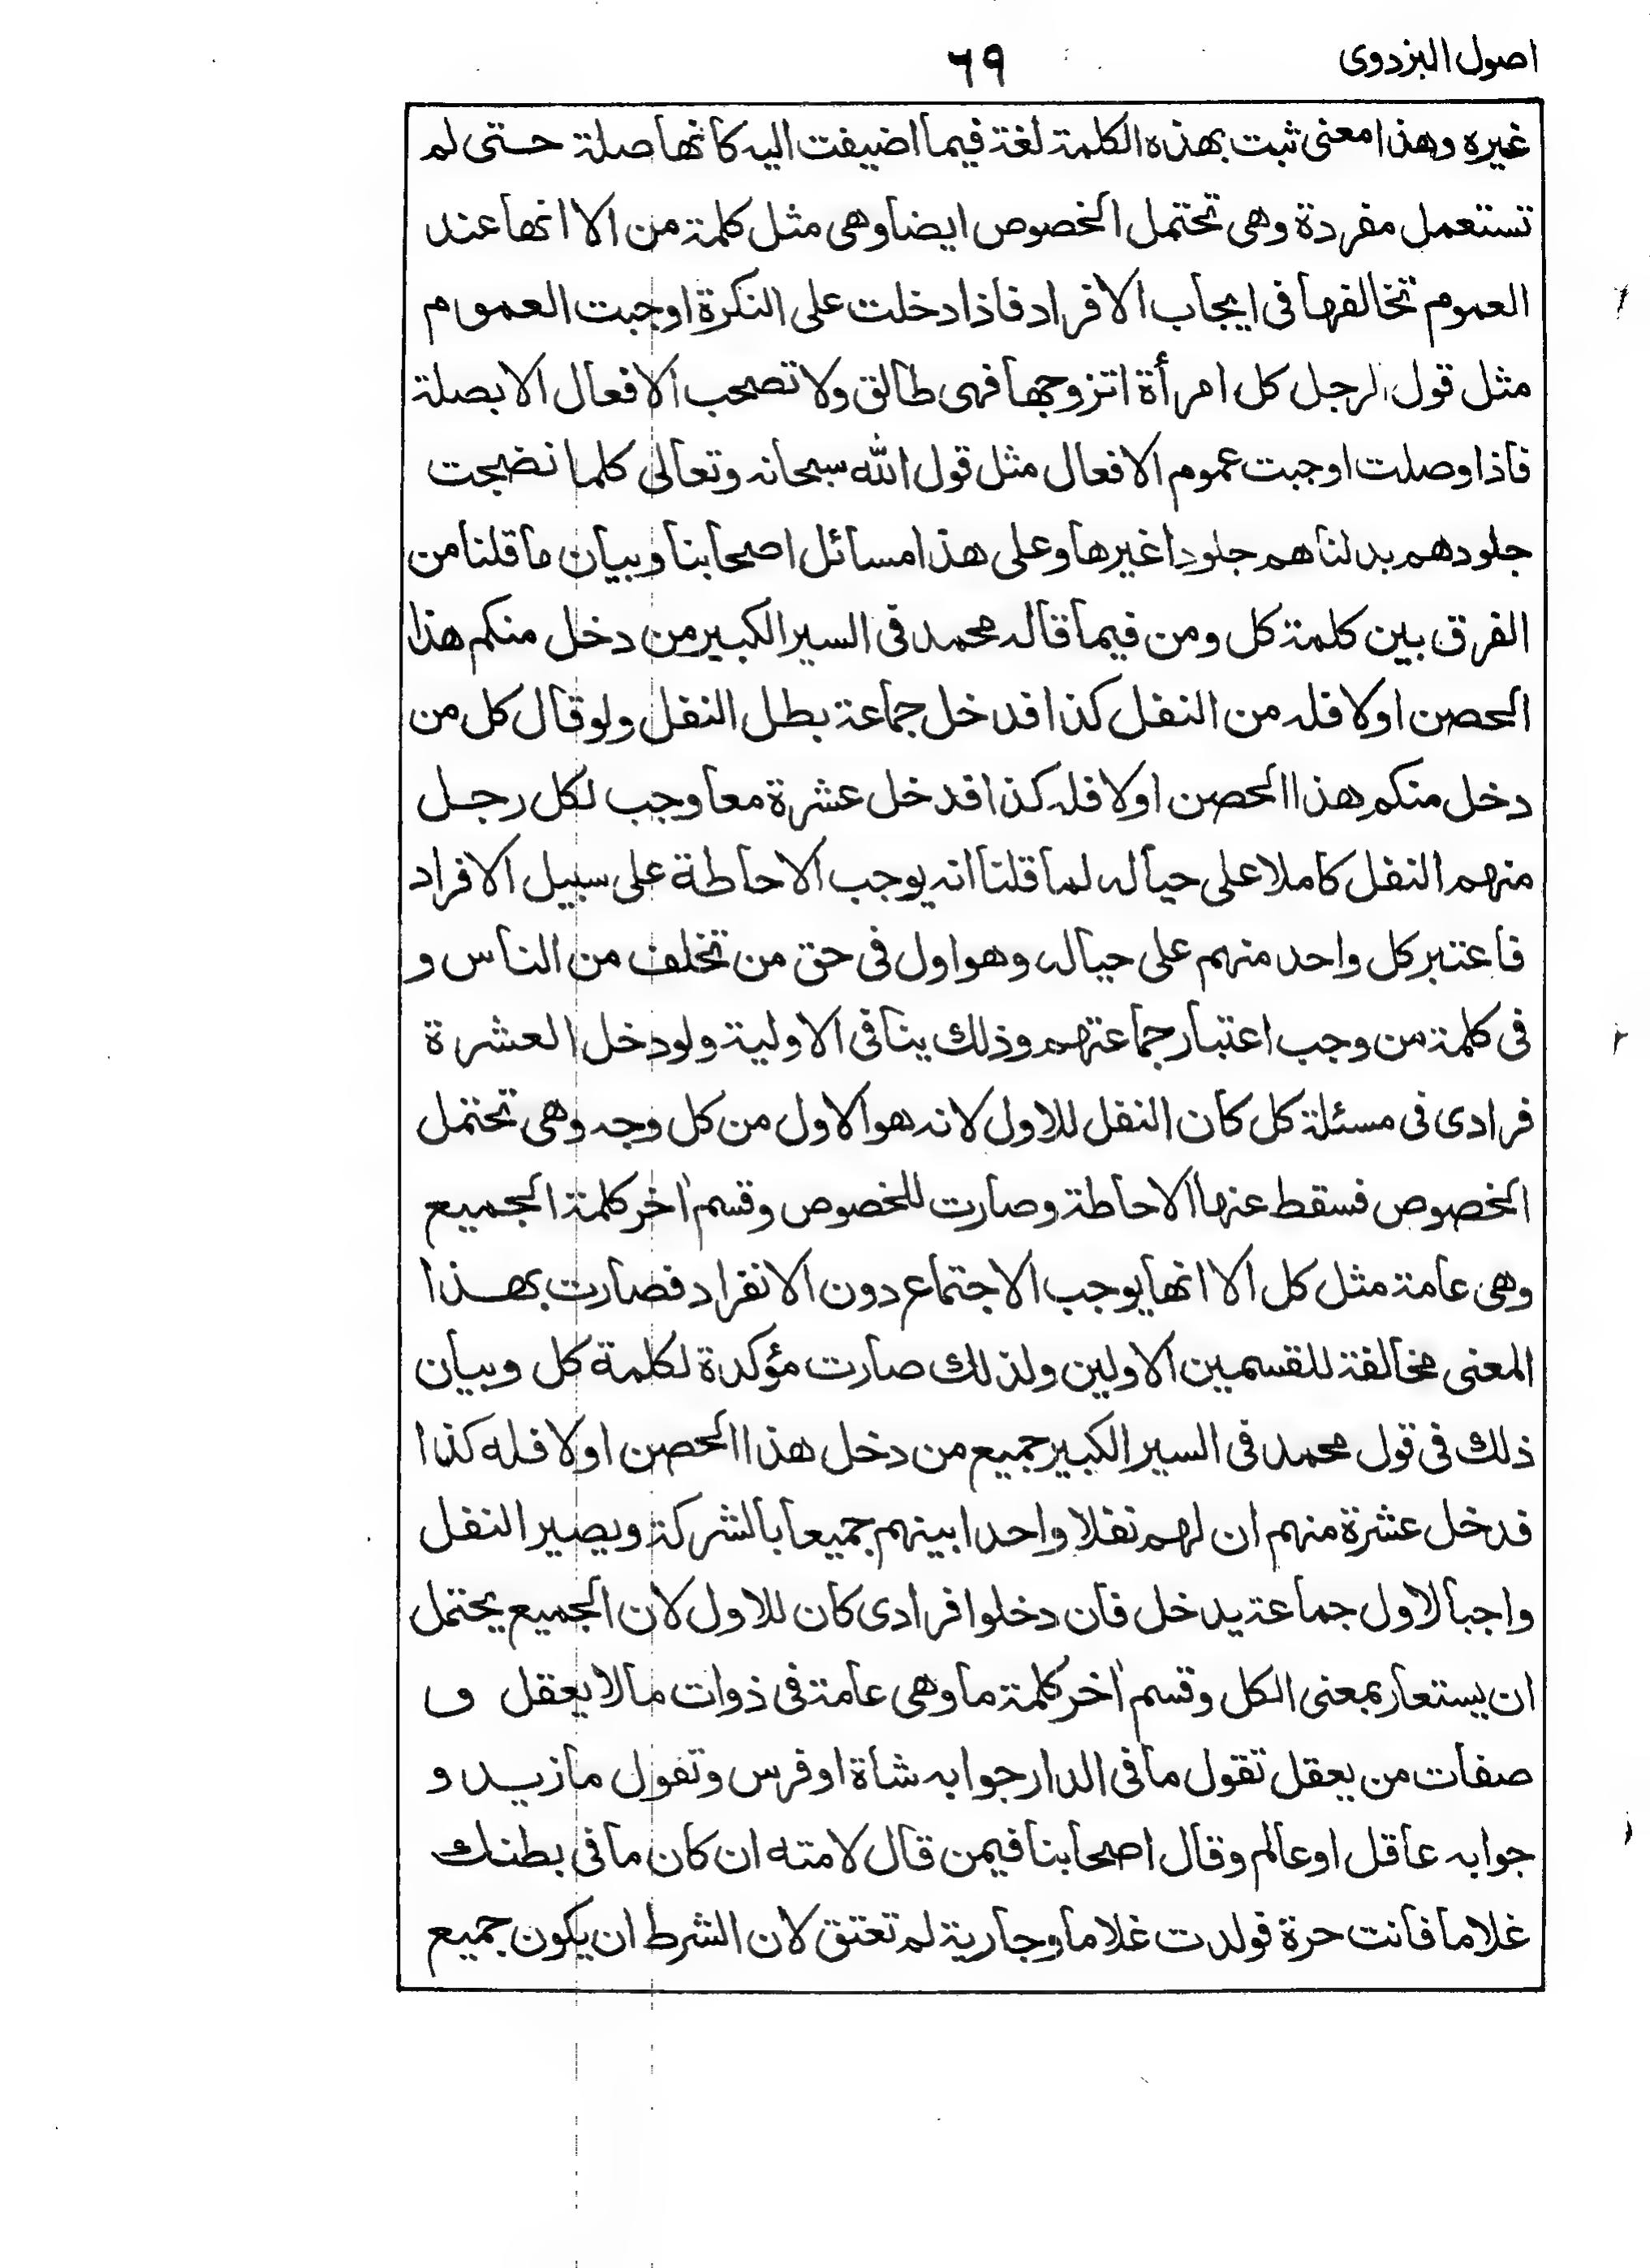 اصول البزدوی
٦٩
غيره وهذا معنى ثبت بهذه الكلمة لغة فيما اضيفت اليه كانها صلة حتى لم
تستعمل مفردة وهى تحتمل الخصوص ايضا وهى مثل كلمة من الا انها عند
العموم تخالفها فى ايجاب الافراد فاذا دخلت على النكرة اوجبت العموم
مثل قول الرجل كل امرأة اتزوجها فهى طالق ولا تصحب الافعال الا بصلة
فاذا وصلت اوجبت عموم الافعال مثل قول الله سبحانه وتعالى كلما نضجت
جلودهم بدلناهم جلودا غيرها وعلى هذا مسائل اصحابنا وبيان ما قلنا من
الفرق بين كلمة كل ومن فيما قاله محمد فى السير الكبير من دخل منكم هذا
الحصن اولا فله من النفل كذا فدخل جماعة بطل النفل ولو قال كل من
دخل منكم هذا الحصن اولا فله كذا فدخل عشرة معا وجب لكل رجل
منهم النفل كاملا على حياله لما قلنا انه يوجب الاحاطة على سبيل الافراد
فاعتبر كل واحد منهم على حياله وهو اول فى حق من تخلف من الناس و
فى كلمة من وجب اعتبار جماعتهم وذلك ينافى الاولية ولو دخل العشرة
فرادى فى مسئلة كل كان النفل للاول لانه هو الاول من كل وجه وهى تحتمل
الخصوص فسقط عنها الاحاطة وصارت للخصوص وقسم اٰخر كلمة الجميع
وهى عامة مثل كل الا انها يوجب الاجتماع دون الانفراد فصارت بهذا
المعنى مخالفة للقسمين الاولين ولذلك صارت مؤكدة لكلمة كل وبيان
ذلك فى قول محمد فى السير الكبير جميع من دخل هذا الحصن اولا فله كذا
فدخل عشرة منهم ان لهم نفلا واحدا بينهم جميعا بالشركة ويصير النفل
واجبا لاول جماعة يدخل فان دخلوا فرادى كان للاول لان الجميع يحتمل
ان يستعار بمعنى الكل وقسم اٰخر كلمة ما وهى عامة فى ذوات ما لا يعقل و
صفات من يعقل تقول ما فى الدار جوابه شاة او فرس وتقول ما زيد و
جوابه عاقل او عالم وقال اصحابنا فيمن قال لامته ان كان ما فى بطنك
غلاما فانت حرة فولدت غلاما وجارية لم تعتق لان الشرط ان يكون جميع